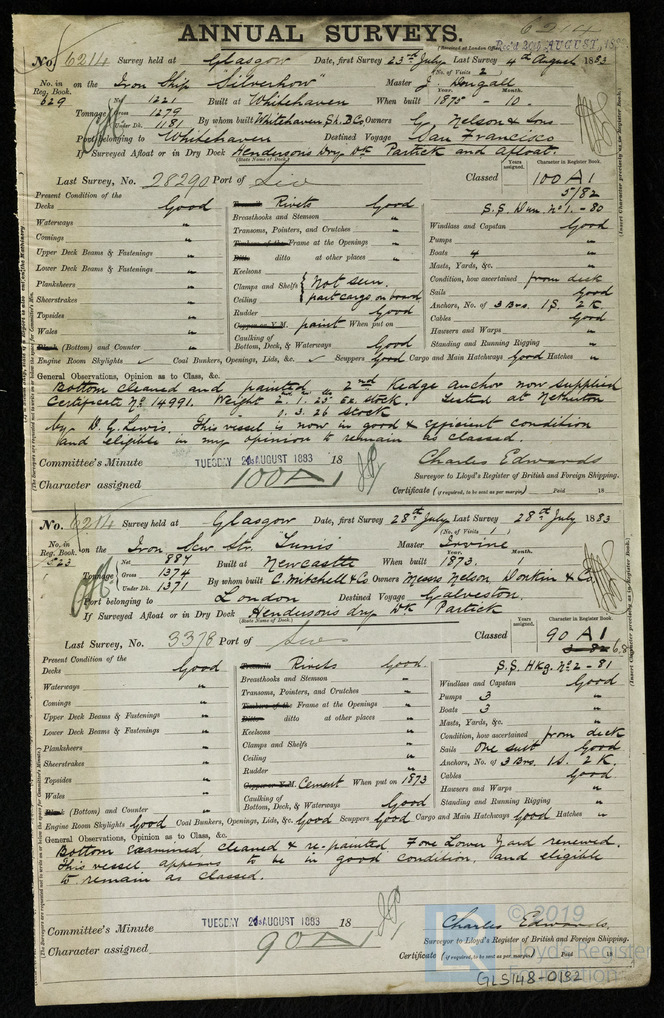 6214
ANNUAL SURVEYS.
(Received at London Office
Rec'd 20 AUGUST, 188
No. 6214 Survey held at Glasgow Date, first Survey 23rd July Last Survey 4th August 1883
(No. of Visits 2)
No. in Reg. Book. on the Iron Ship "Silverhow" Master J. Dougall
629 Net 1221 Built at Whitehaven When built 1875 - 10.
Year. Month.
Tonnage Gross 1279
Under Dk. 1181 By whom built Whitehaven Sh. B Co Owners G. Nelson & Sons
Port belonging to Whitehaven Destined Voyage San Francisco
If Surveyed Afloat or in Dry Dock Hendersons Dry Dk Partick and Afloat.
(State Name of Dock.)
Years assigned. Character in Register Book.
Last Survey, No. 28290 Port of Liv Classed 100 A 1
5/82
Present Condition of the S.S. Dun. No 1. - 80
Decks Good Rivets Good Windlass and Capstan Good
Waterways " Breasthooks and Stemson " Pumps "
Comings " Transoms, Pointers, and Crutches " Boats 4 "
Upper Deck Beams & Fastenings " Timbers of the Frame at the Openings " Masts, Yards, &c. "
Lower Deck Beams & Fastenings " Ditto ditto at other places " Condition, how ascertained from deck
Planksheers " Keelsons Sails Good
Sheerstrakes " Clamps and Shelfs not seen. Anchors, No. of 3 Brs. 1 S. 2 K
Topsides " Ceiling part cargo on board Cables Good
Wales " Rudder Good Hawsers and Warps "
(Bottom) and Counter " Copper or Y.M. paint When put on Standing and Running Rigging "
Caulking of Bottom, Deck, & Waterways Good
Engine Room Skylights ✓ Coal Bunkers, Openings, Lids, &c. ✓ Scuppers Good Cargo and Main Hatchways Good Hatches "
General Observations, Opinion as to Class, &c.
Bottom cleaned and painted 2nd Kedge anchor now supplied
Certificate No. 14991. Weight 2. 1. 23 ex. stock. Tested at Netherton
1. 3. 26 stock
by D. G. Lewis. This vessel is now in good & efficient condition
and eligible in my opinion to remain as classed.
Committee's Minute TUESDAY 21 AUGUST 1883 18 Charles Edwards
Character assigned 100A1 Surveyor to Lloyd's Register of British and Foreign Shipping.
Certificate (if required, to be sent as per margin) Paid 18
No. 6214 Survey held at Glasgow Date, first Survey 28th July Last Survey 28th July 1883
(No. of Visits 1)
No. in Reg. Book. on the Iron Scw Str. Tunis Master Irvine
523 Net 887 Built at Newcastle When built 1873. 1
Year. Month.
Tonnage Gross 1374
Under Dk. 1371 By whom built C. Mitchell & Co Owners Messrs Nelson Donkin & Co.
Port belonging to London Destined Voyage Galveston.
If Surveyed Afloat or in Dry Dock Hendersons dry Dk Partick
(State Name of Dock.)
Years assigned. Character in Register Book.
Last Survey, No. 3378 Port of Classed 90 A 1
Present Condition of the S.S. Hkg. No 2 - 81
Decks Good Rivets Good Windlass and Capstan Good
Waterways " Breasthooks and Stemson " Pumps 3 "
Comings " Transoms, Pointers, and Crutches " Boats 3 "
Upper Deck Beams & Fastenings " Timbers of the Frame at the Openings " Masts, Yards, &c. "
Lower Deck Beams & Fastenings " Ditto ditto at other places " Condition, how ascertained from deck
Planksheers " Keelsons " Sails One suit Good
Sheerstrakes " Clamps and Shelfs " Anchors, No. of 3 Brs. 1 S. 2 K.
Topsides " Ceiling " Cables Good
Wales " Rudder " Hawsers and Warps "
(Bottom) and Counter " Copper or Y.M. Cement When put on 1873 Standing and Running Rigging "
Caulking of Bottom, Deck, & Waterways Good
Engine Room Skylights Good Coal Bunkers, Openings, Lids, &c. Good Scuppers Good Cargo and Main Hatchways Good Hatches "
General Observations, Opinion as to Class, &c.
Bottom Examined cleaned & re-painted Fore Lower Yard renewed.
This vessel appears to be in good condition, and eligible
to remain as classed.
Committee's Minute TUESDAY 21 AUGUST 1883 18 Charles Edwards.
Character assigned 90A1 Surveyor to Lloyd's Register of British and Foreign Shipping.
Certificate (if required, to be sent as per margin) Paid 18
© 2019
Lloyd's Register
Foundation
GLS148-0182